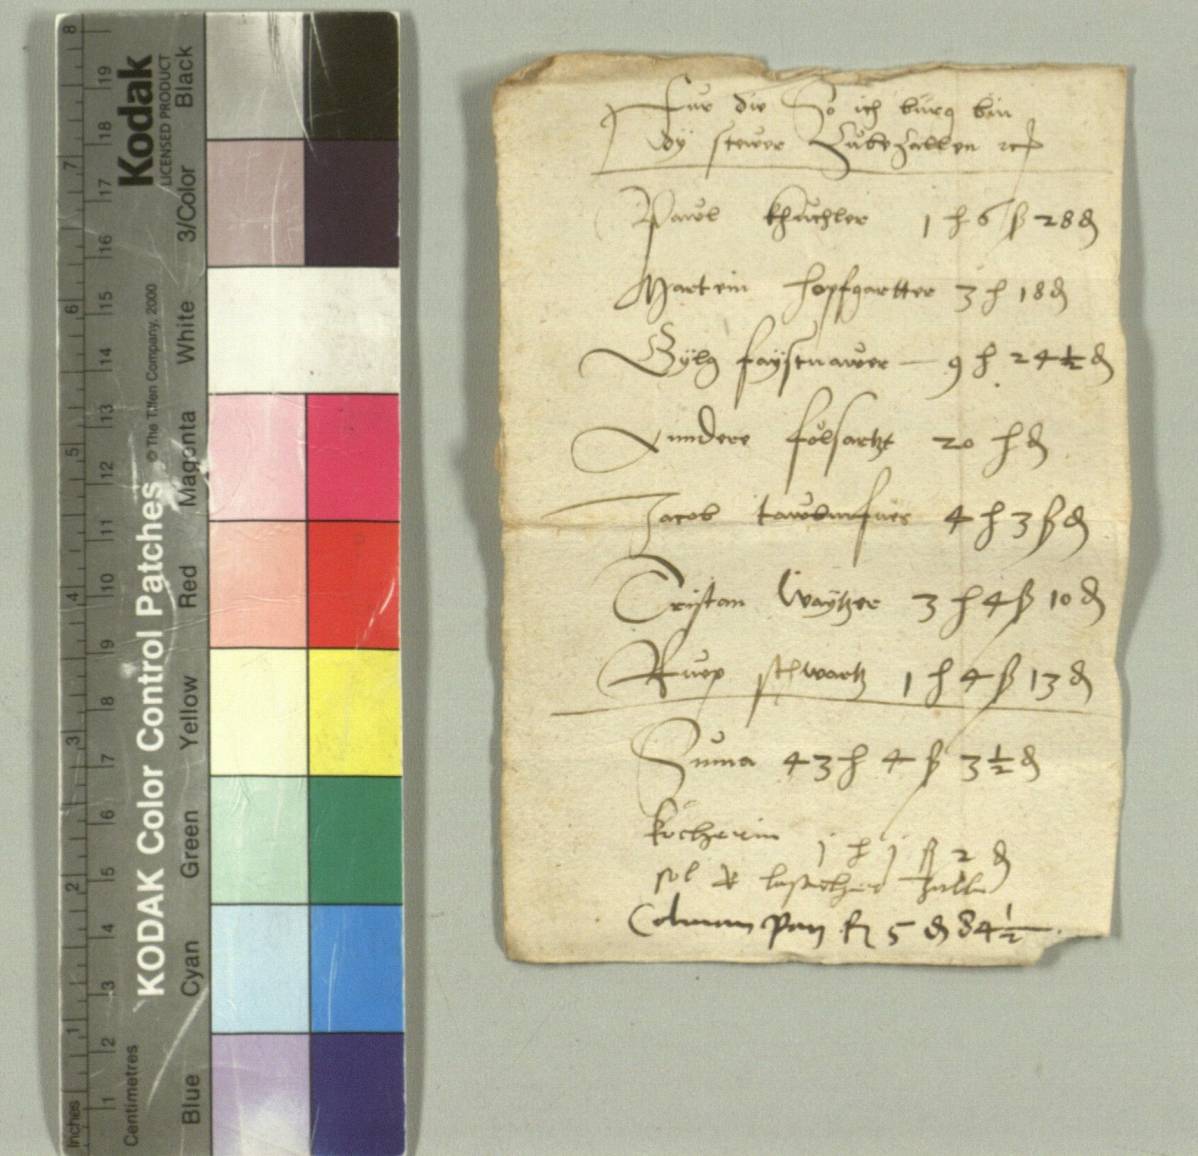 KODAK Color Control Patches
© The Tiffen Company, 2000
Kodak
LICENSED PRODUCT
Inches
1
2
3
4
5
6
7
8
Centimetres
1
2
3
4
5
6
7
8
9
10
11
12
13
14
15
16
17
18
19
Blue
Cyan
Green
Yellow
Red
Magenta
White
3/Color
Black
Fur die So ich burg bin
dy stewer Zubezallen
Pawl khuchler 1 h 6 ß 28 ₰
Martein hopfgartter 3 h 18 ₰
Gylg faystnawer — 9 h 24 ½ ₰
Anndere 20 h ₰
Jacob 4 h 3 ß ₰
Cristan Waytzer 3 h 4 ß 10 ₰
Ruep schwartz 1 h 4 ß 13 ₰
Suma 43 h 4 ß 3 ½ ₰
j h j ß 2 ₰
Colman 5 ₰ 84 ½